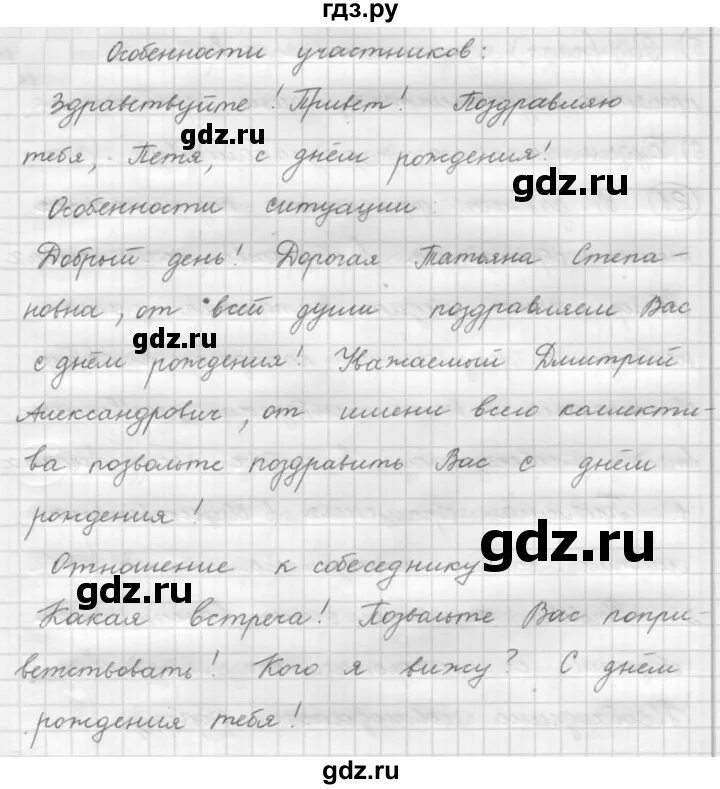 гдз.ру
Особенности участников:
Здравствуйте! Привет! Поздравляю
gdz.ru
тебя, Петя, с днём рождения!
gdz.ru
Особенности ситуации:
Добрый день! Дорогая Татьяна Степа-
новна, от всей души поздравляем Вас
gdz.ru
с днём рождения! Уважаемый Дмитрий
Александрович, от имени всего коллекти-
ва позвольте поздравить Вас с днём
рождения!
gdz.ru
Отношение к собеседнику
gdz.ru
Какая встреча! Позвольте Вас попри-
ветствовать! Кого я вижу? С днём
рождения тебя!
gdz.ru